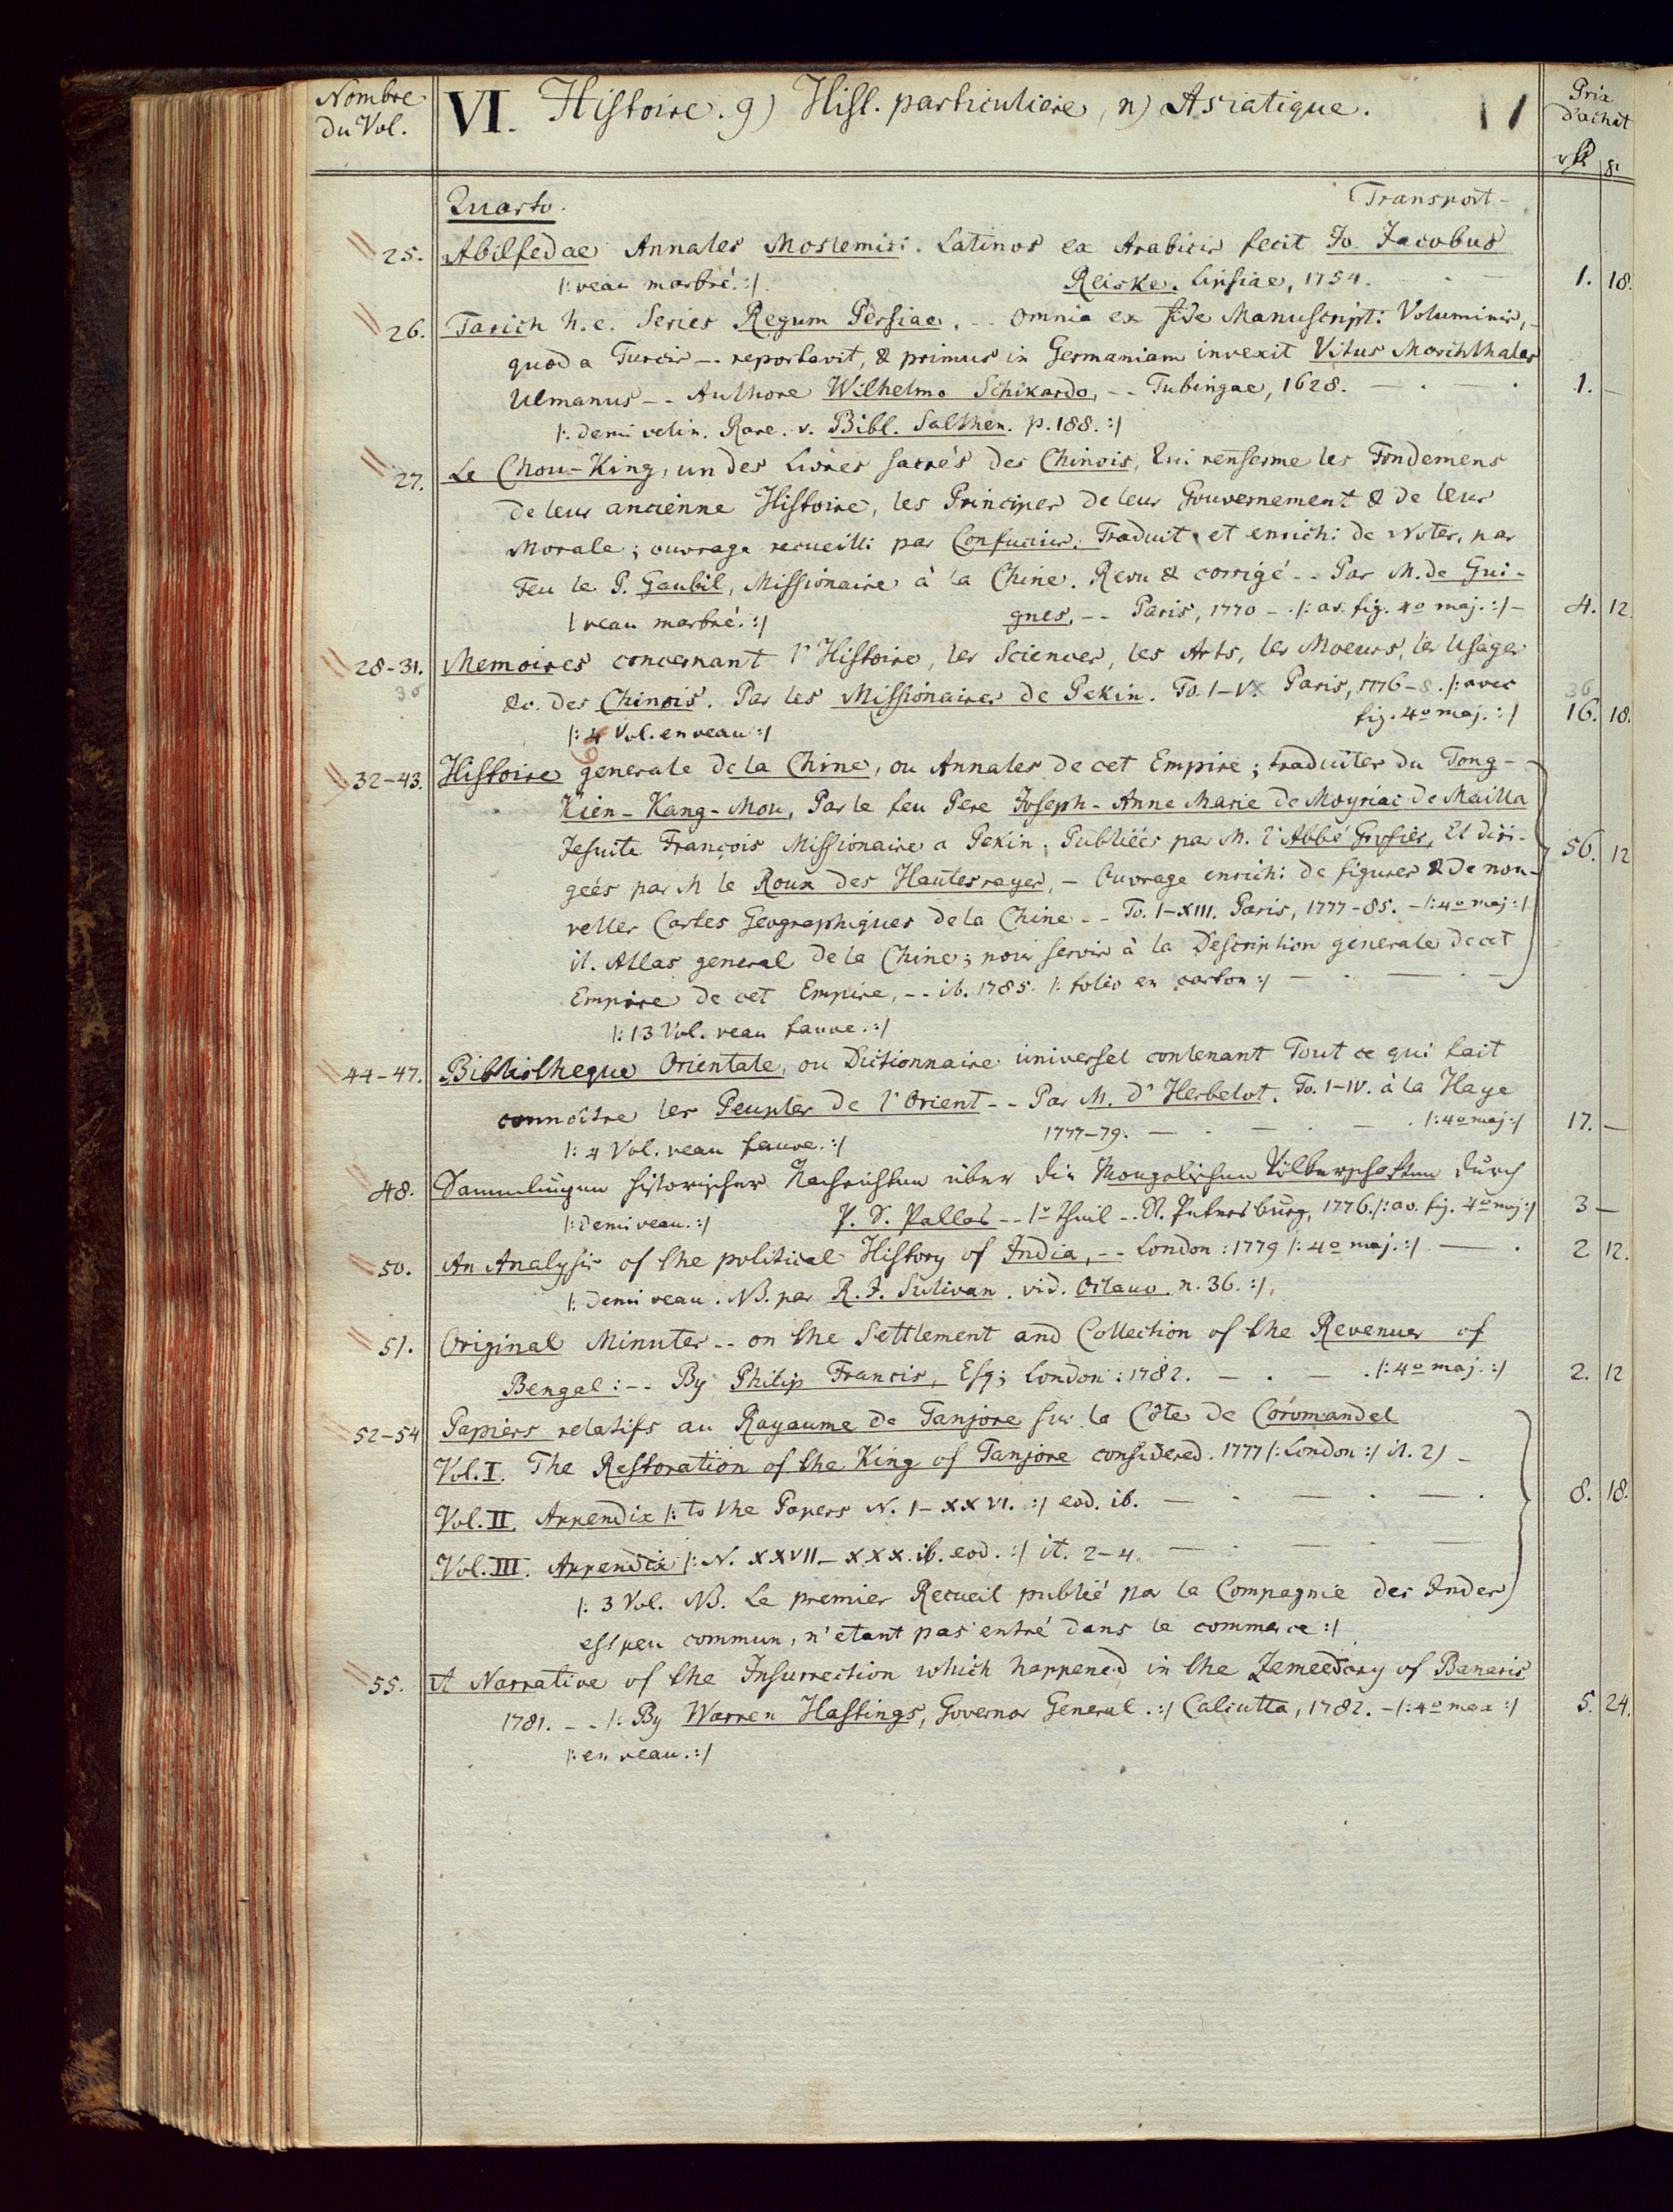 Nombre
du Vol.
VI. Histoire. g) Hist. particuliere, n) Asiatique.
Prix
d'achat
Quarto. Transport -
25. Abilfedae Annales Moslemici. Latinos ex Arabicis fecit Jo. Jacobus
/: veau marbré. :/ Reiske. Lipsiae, 1754. 1. 18.
26. Tarich h. e. Series Regum Persiae. -- omnia ex fide Manuscripti Voluminis,
quod a Turcis -- reportavit, & primus in Germaniam invexit Vitus Marchthaler
Ulmanus -- Authore Wilhelmo Schikardo, -- Tubingae, 1628. 1. —
/: demi velin. Rare. v. Bibl. Salthen. p. 188. :/
27. Le Chou-King, un des Livres sacrés des Chinois, Qui renferme les Fondemens
de leur ancienne Histoire, les Principes de leur Gouvernement & de leur
Morale; ouvrage recueilli par Confucius. Traduit et enrichi de Notes, par
Feu le P. Gaubil, Missionaire à la Chine. Revu & corrigé -- Par M. de Gui-
/ veau marbré. :/ gnes, -- Paris, 1770 - /: av. fig. 4o maj. :/ - 4. 12
28-31. Memoires concernant l'Histoire, les Sciences, les Arts, les Moeurs, les Usages
&c. des Chinois. Par les Missionaires de Pekin. To. I-V Paris, 1776-8. /: avec
/: 4 Vol. en veau :/ fig. 4o maj. :/ 16. 18.
32-43. Histoire generale de la Chine, ou Annales de cet Empire; traduites du Tong-
Kien-Kang-Mou, Par le feu Pere Joseph-Anne Marie de Moyriac de Mailla
Jesuite François Missionaire a Pekin. Publiées par M. l'Abbé Grosier, Et diri-
geés par M le Roux des Hautesrayes, - Ouvrage enrichi de figures & de nou-
velles Cartes Geographiques de la Chine -- To. I-XIII. Paris, 1777-85. - /: 4o maj :/
56. 12
it. Atlas general de la Chine; pour servir à la Description generale de cet
Empire de cet Empire, -- ib. 1785. /: folio en carton :/
/: 13 Vol. veau fauve. :/
44-47. Bibliotheque Orientale, ou Dictionnaire universel contenant Tout ce qui fait
connoître les Peuples de l'Orient -- Par M. D'Herbelot. To. I-IV. à la Haye
/: 4 Vol. veau fauve. :/ 1777-79. — . — . — . /: 4o maj :/ 17. —
48. Sammlungen historischer Nachrichten über die Mongolischen Völkerschaften durch
/: demi veau. :/ P. S. Pallas -- 1r Theil -- St. Petersburg, 1776. /: av. fig. 4o maj :/ 3 —
50. An Analysis of the political History of India, -- London: 1779 /: 4o maj. :/ — . 2 12.
/: demi veau. NB. par R. J. Sulivan. vid. Octavo. n. 36. :/
51. Original Minutes -- on the Settlement and Collection of the Revenues of
Bengal: -- By Philip Francis, Esq; London: 1782. — . — . /: 4o maj. :/ 2. 12
52-54 Papiers relatifs au Royaume de Tanjore sur la Côte de Coromandel
Vol. I. The Restoration of the King of Tanjore considered. 1777 /: London :/ it. 2) -
Vol. II. Appendix /: to the Papers N. I-XXVI. :/ eod. ib. — . — . — . 8. 18.
Vol. III. Appendix /: N. XXVII-XXX. ib. eod. :/ it. 2-4. — . — . —
/: 3 Vol. NB. Le premier Recueil publié par la Compagnie des Indes
est peu commun, n'etant pas entré dans le commerce :/
55. A Narrative of the Insurrection which happened in the Zemeedary of Banaris
1781. -- /: By Warren Hastings, Governor General. :/ Calcutta, 1782. - /: 4o max :/ 5. 24.
/: en veau. :/